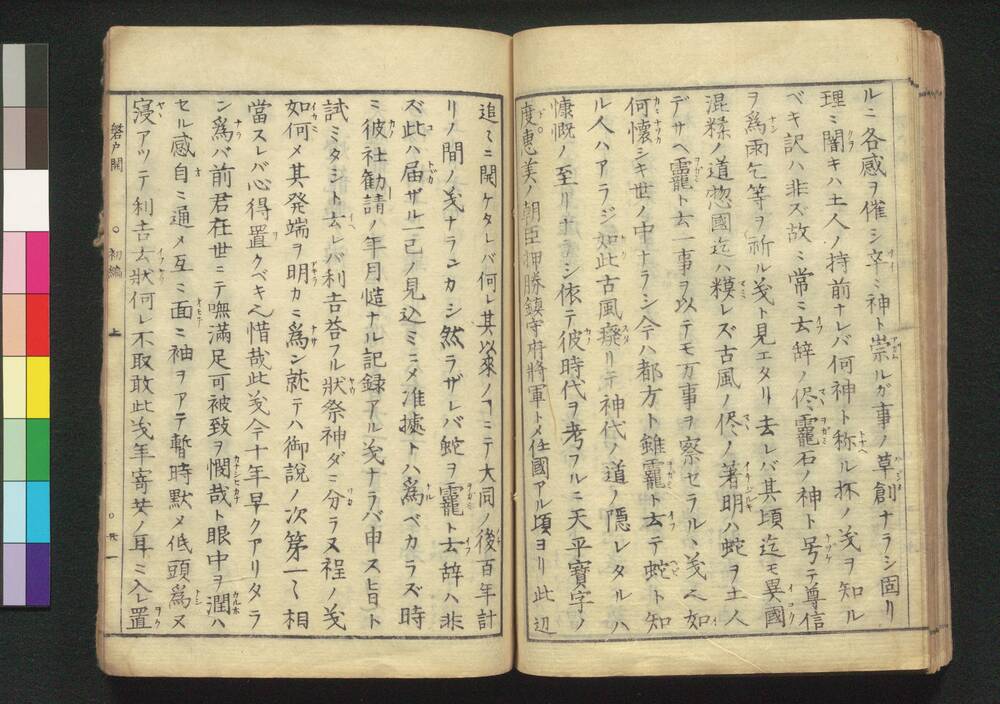 ルニ各感ヲ催シ辛ミ神ト崇ルガ事ノ草創ナラシ固リ
理ミ闇キハ土人ノ持前ナレバ何神ト称ル抔ノ㕝ヲ知ル
ベキ訳ハ非ズ故ニ常ニ去辞ノ侭靇石ノ神ト号テ尊信
ヲ為雨乞等ヲ祈ル㕝ト見エタリ去レバ其頃迄モ異國
混糅ノ道惣國迄ハ糢レズ古風ノ侭ノ著明ハ蛇ヲ土人
デサヘ靇ト去一事ヲ以テモ万事ヲ察セラルヽ㕝也如
何懐シキ世ノ中ナラシ今ハ都方ト雖靇ト去テ蛇ト知
ル人ハアラジ如此古風廃リテ神代ノ道ノ隠レタルハ
慷慨ノ至リナラシ依テ彼時代ヲ考フルニ天平寶字ノ
度恵美ノ朝臣押勝鎮守府將軍トメ任國アル頃ヨリ此辺
追〻ニ開ケタレバ何レ其以來ノヿニテ大同ノ後百年計
リノ間ノ㕝ナランカシ然ラザレバ蛇ヲ靇ト去辞ハ非
ズ此ハ届ザル一己ノ見込ミニメ准據トハ為ベカラズ時
ミ彼社勧請ノ年月慥ナル記録アル㕝ナラバ申ス旨ト
試ミタシト去レバ利吉荅フル狀祭神ダニ分ラヌ程ノ㕝
如何メ其発端ヲ明カニ為ン就テハ御説ノ次第一〻相
當スレバ心得置クベキ也惜哉此㕝今十年早クアリタラ
ン為バ前君在世ミテ嘸満足可被致ヲ憫哉ト眼中ヲ潤ハ
セル感自ミ通メ互ミ面ミ袖ヲアテ暫時默メ低頭為ヌ
寝アツテ利吉去狀何レ不取敢此㕝年寄共ノ耳ミ入レ置
磐戸開
○初編
上
○廾一